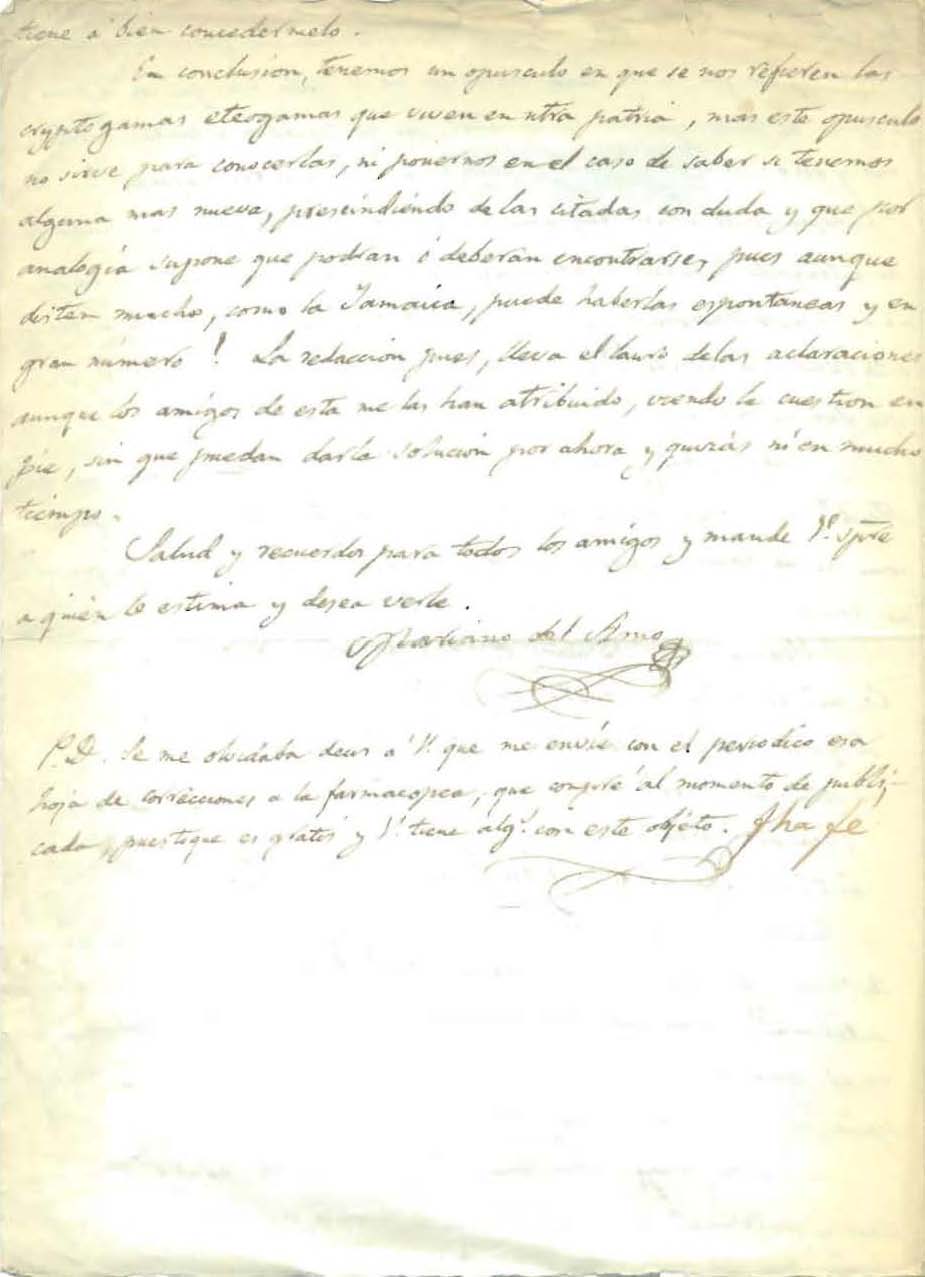 tiene á bien concedermelo.
En conclusion, tenemos un opusculo en que se nos refieren las
cryptogamas eteogamas que viven en ntra patria, mas este opusculo
no sirve para conocerlas, ni ponernos en el caso de saber si tenemos
alguna mas nueva, prescindiendo de las citadas con duda y que por
analogía supone que podran ó deberán encontrarse, pues aunque
disten mucho, como la Jamaica, puede haberlas espontaneas y en
gran número! La redaccion pues, lleva el lauro de las aclaraciones
aunque los amigos de esta me las han atribuido, viendo la cuestion en
pie, sin que puedan darla solucion por ahora y quizás ni en mucho
tiempo.
Salud y recuerdos para todos los amigos y mande V. spre
a quien le estima y desea verle.
Mariano del Amo
P.D. Se me olvidaba decir a V. que me envíe con el periodico esa
hoja de correcciones a la farmacopea, que compré al momento de publi-
cada, puesto que es gratis y V. tiene alg. con este objeto.